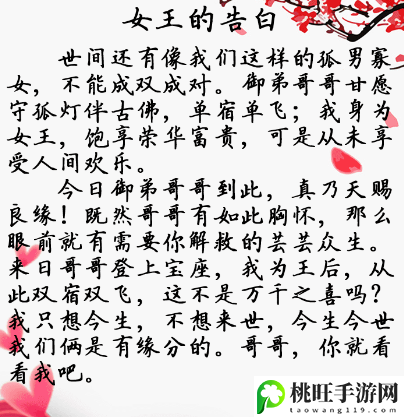 女王的告白
世间还有像我们这样的孤男寡
女，不能成双成对。御弟哥哥甘愿
守孤灯伴古佛，单宿单飞；我身为
女王，饱享荣华富贵，可是从未享
受人间欢乐。
今日御弟哥哥到此，真乃天赐
良缘！既然哥哥有如此胸怀，那么
眼前就有需要你解救的芸芸众生。
来日哥哥登上宝座，我为王后，从
此双宿双飞，这不是万千之喜吗？
我只想今生，不想来世，今生今世
我们俩是有缘分的。哥哥，你就看
看我吧。
桃旺手游网
taowang119.com